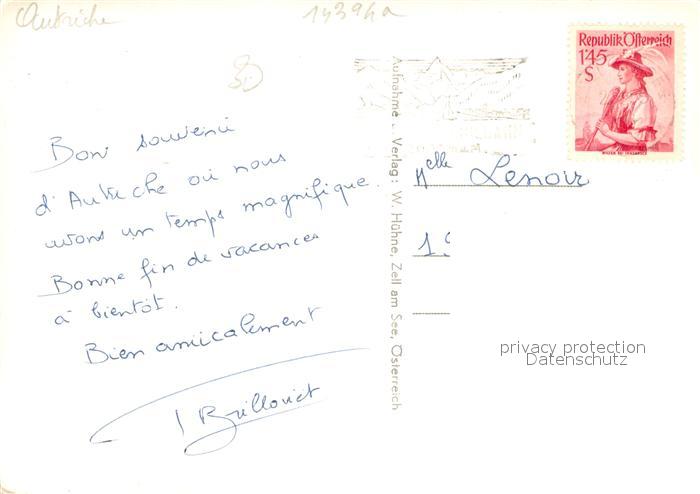 Autriche
14394a
Bon souvenir
d'Autriche où nous
avons un temps magnifique.
Bonne fin de vacances
à bientôt.
Bien amicalement
Aufnahme u. Verlag: W. Hühne, Zell am See, Österreich
Republik Österreich
1'45
S
Melle Lenoir
19
privacy protection
Datenschutz